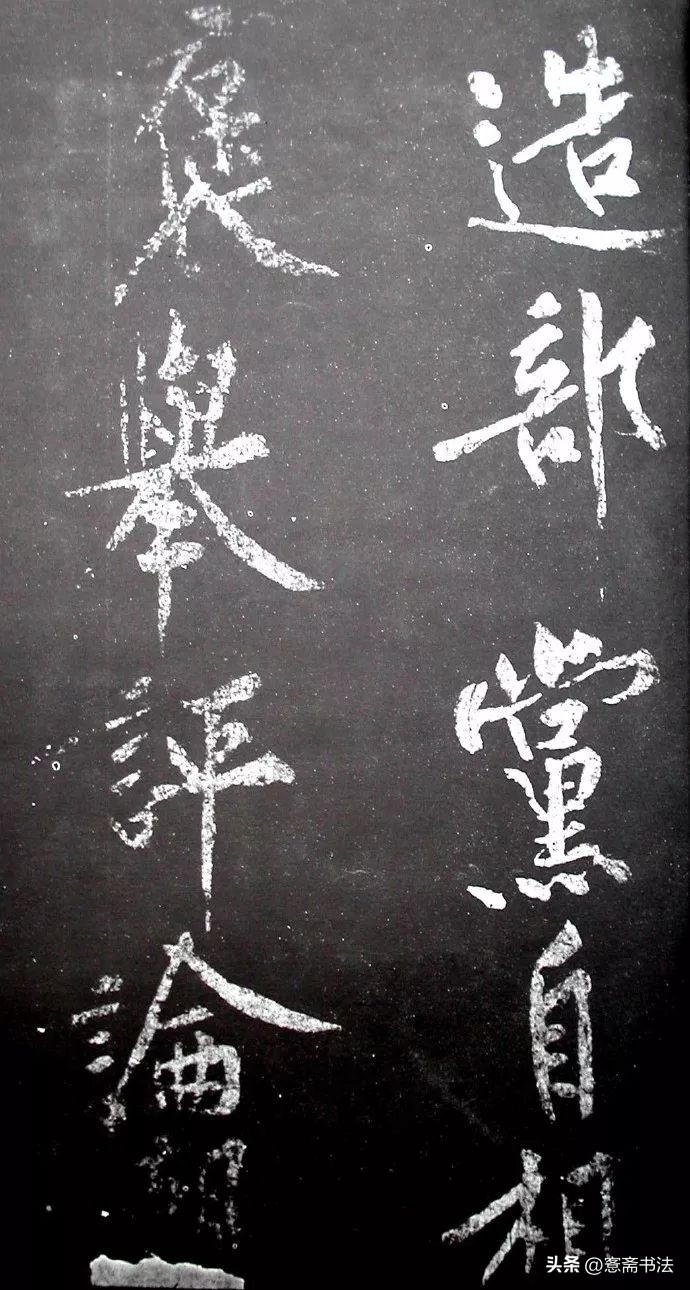 造部黨自相
褒舉評論朝
头条 @愙斋书法